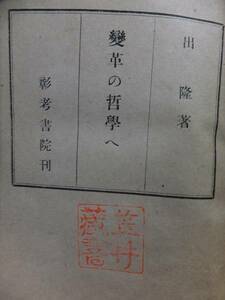 出隆著
變革の哲學へ
彰考書院刊